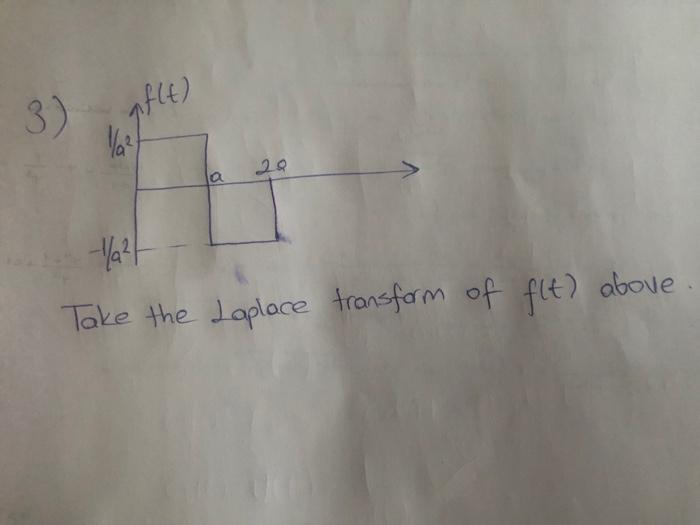 3)
f(t)
1/a²
a
2a
-1/a²
Take the Laplace transform of f(t) above.